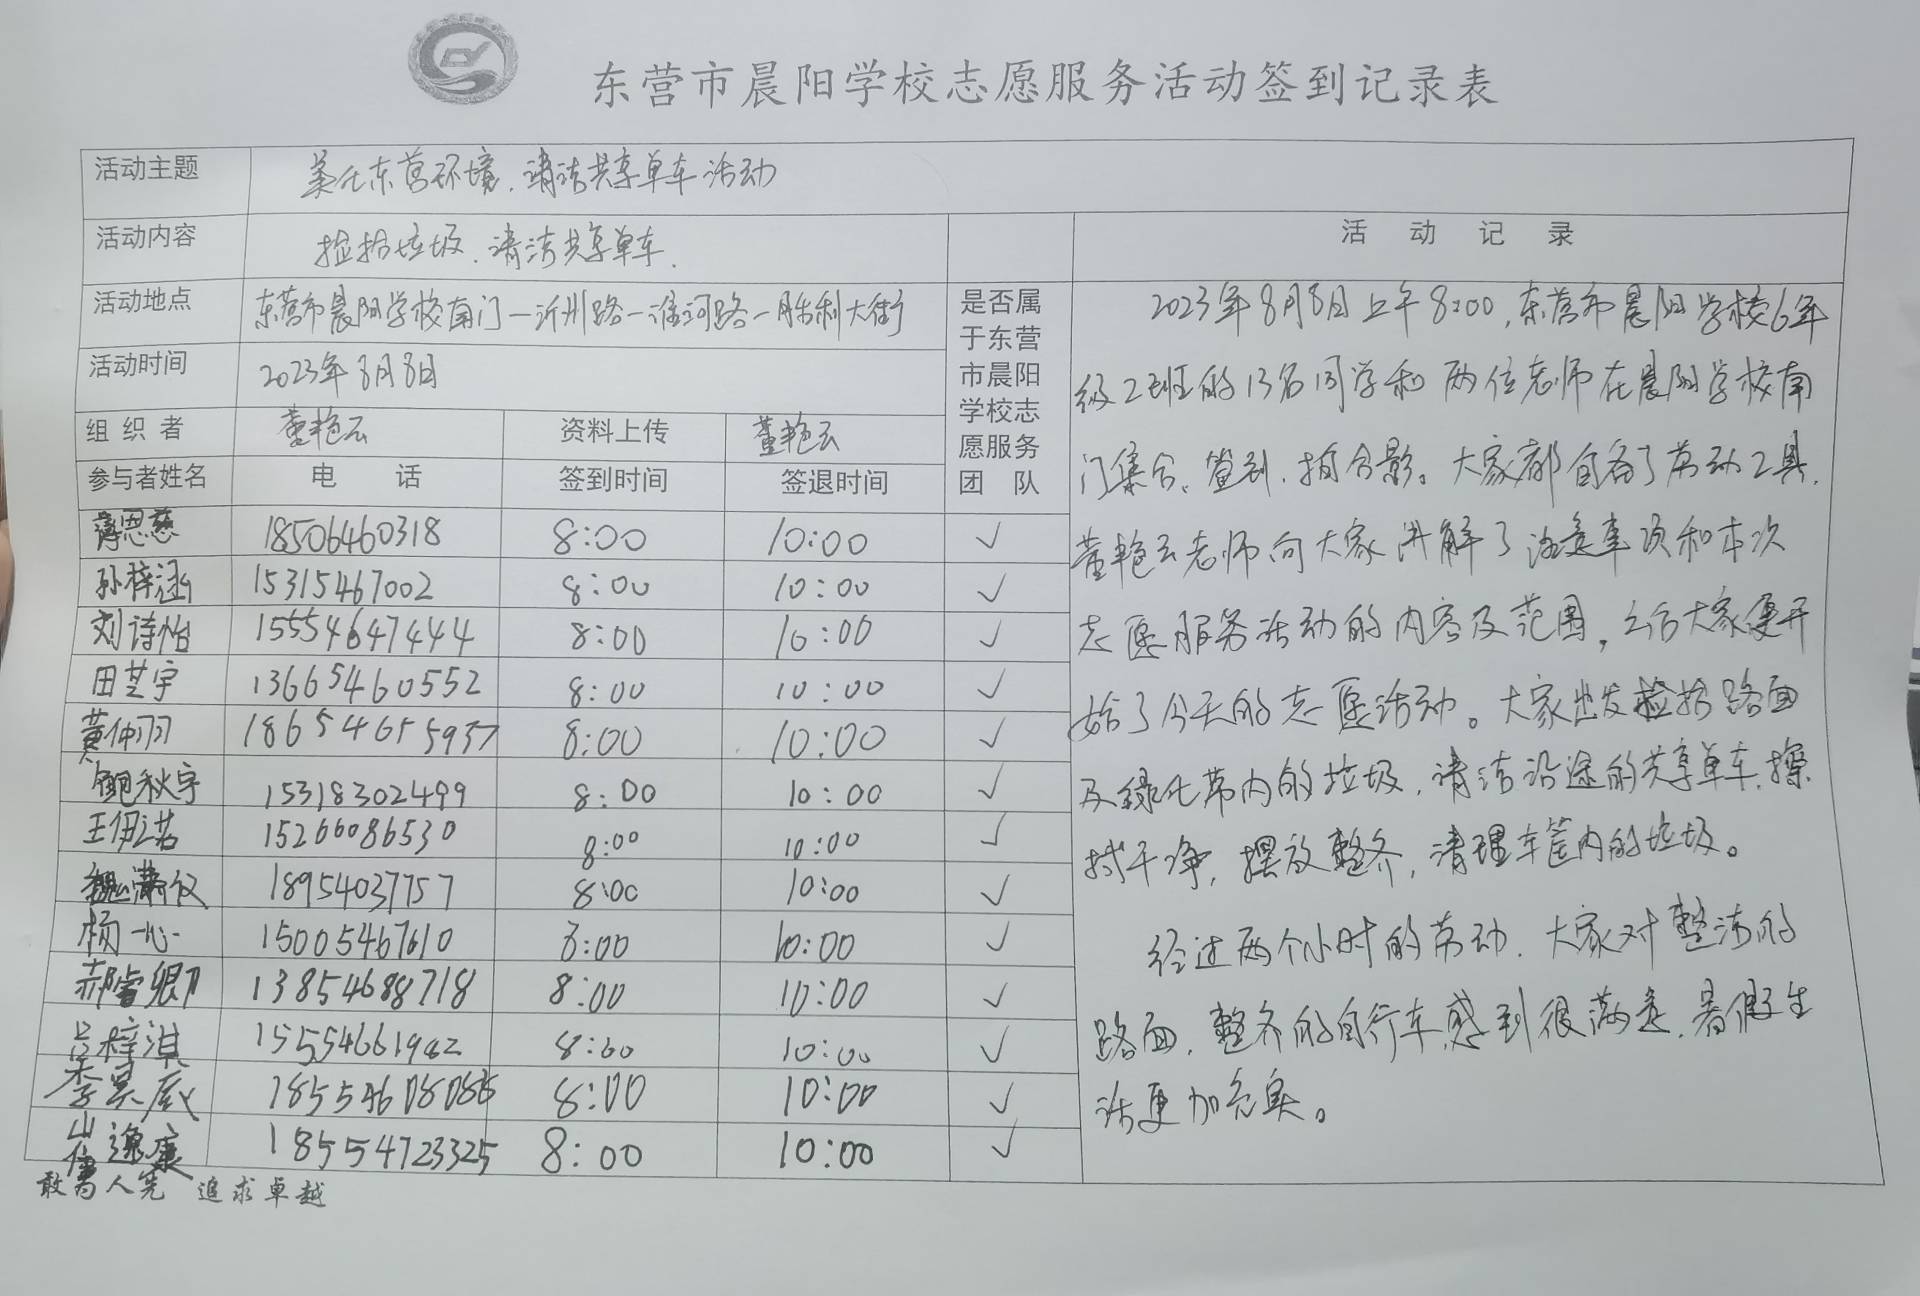 东营市晨阳学校志愿服务活动签到记录表
活动主题 美化东营环境、清洁共享单车活动
活动内容 捡拾垃圾、清洁共享单车.
活动地点 东营市晨阳学校南门—沂州路—淮河路—胜利大街
活动时间 2023年8月8日
组织者 董艳云 资料上传 董艳云
参与者姓名 电话 签到时间 签退时间 是否属于东营市晨阳学校志愿服务团队
思慈 18506460318 8:00 10:00 ✓
孙梓涵 15315467002 8:00 10:00 ✓
刘诗怡 15554647444 8:00 10:00 ✓
田芝宇 13665460552 8:00 10:00 ✓
黄仲羽 18654655937 8:00 10:00 ✓
鲍秋宇 15318302499 8:00 10:00 ✓
王伊诺 15266086530 8:00 10:00 ✓
魏潇仪 18954037757 8:00 10:00 ✓
杨一心 15005467610 8:00 10:00 ✓
郝睿卿 13854688718 8:00 10:00 ✓
吴梓淇 15554661982 8:00 10:00 ✓
李昊宸 8:00 10:00 ✓
崔逸康 18554723325 8:00 10:00 ✓
敢为人先 追求卓越
活动记录
2023年8月8日上午8:00,东营市晨阳学校6年
级2班的13名同学和两位老师在晨阳学校南
门集合、签到、拍合影。大家都自备了劳动工具,
董艳云老师向大家讲解了注意事项和本次
志愿服务活动的内容及范围,之后大家便开
始了今天的志愿活动。大家出发捡拾路面
及绿化带内的垃圾,清洁沿途的共享单车,擦
拭干净,摆放整齐,清理车筐内的垃圾。
经过两个小时的劳动,大家对整洁的
路面,整齐的自行车感到很满意,暑假生
活更加充实。